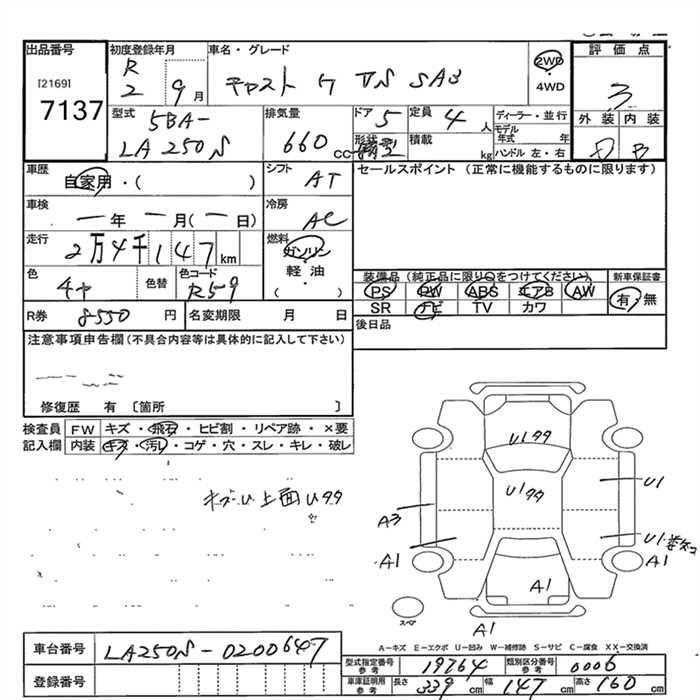 出品番号 初度登録年月 車名・グレード 2WD 評価点
[2169] R 2 9月 キャスト G VS SAⅢ 4WD 3
7137
型式 5BA- 排気量 ドア 5 定員 4人 ディーラー・並行 外装 内装
LA250S 660cc 形状 積載 kg モデル年式 年 B
ハンドル 左・右
車歴 自家用・( ) シフト AT セールスポイント (正常に機能するものに限ります)
車検 ー年 ー月(ー日) 冷房 AC
走行 2万4千147km 燃料 ガソリン
軽油
( )
色 色替 色コード R59 装備品(純正品に限り○をつけてください) 新車保証書
PS PW ABS エアB AW 有・無
SR ナビ TV カワ
R券 8550円 名変期限 月 日 後日品
注意事項申告欄(不具合内容等は具体的に記入して下さい)
修復歴 有 〔箇所 〕
検査員 FW キズ・飛石・ヒビ割・リペア跡・×要
記入欄 内装 キズ・汚レ・コゲ・穴・スレ・キレ・破レ
上面Uタタ
U1タタ
U1タタ
U1
A3
A1
U1
A1
A1
A1
スペア
A-キズ E-エクボ U-凹み W-補修跡 S-サビ C-腐食 XX-交換済
車台番号 LA250S-0200647
登録番号
型式指定番号 参考 19764 類別区分番号 参考 0006
車庫証明用 参考 長さ 339cm 幅 147cm 高さ 160cm